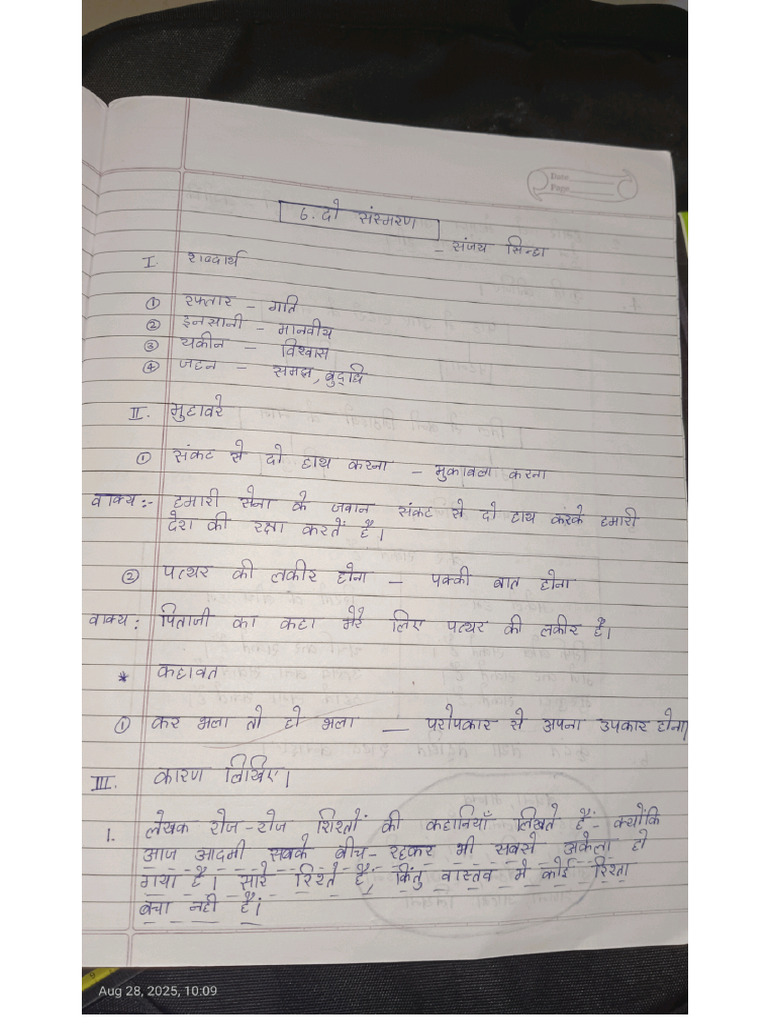 Date
Page
6. दो संस्मरण
- संजय सिन्हा
I. शब्दार्थ
① रफ्तार - गति
② इनसानी - मानवीय
③ यकीन - विश्वास
④ जहन - समझ, बुद्धि
II. मुहावरे
① संकट से दो हाथ करना - मुकाबला करना
वाक्य:- हमारी सेना के जवान संकट से दो हाथ करके हमारी
देश की रक्षा करतें है।
② पत्थर की लकीर होना - पक्की बात होना
वाक्य: पिताजी का कहा मेरे लिए पत्थर की लकीर है।
* कहावत
① कर भला तो हो भला — परोपकार से अपना उपकार होना।
III. कारण लिखिए।
1. लेखक रोज-रोज रिश्तों की कहानियाँ लिखते हैं- क्योंकि
आज आदमी सबके बीच रहकर भी सबसे अकेला हो
गया है। सारे रिश्ते है, किंतु वास्तव मे कोई रिश्ता
बचा नही है।
Aug 28, 2025, 10:09